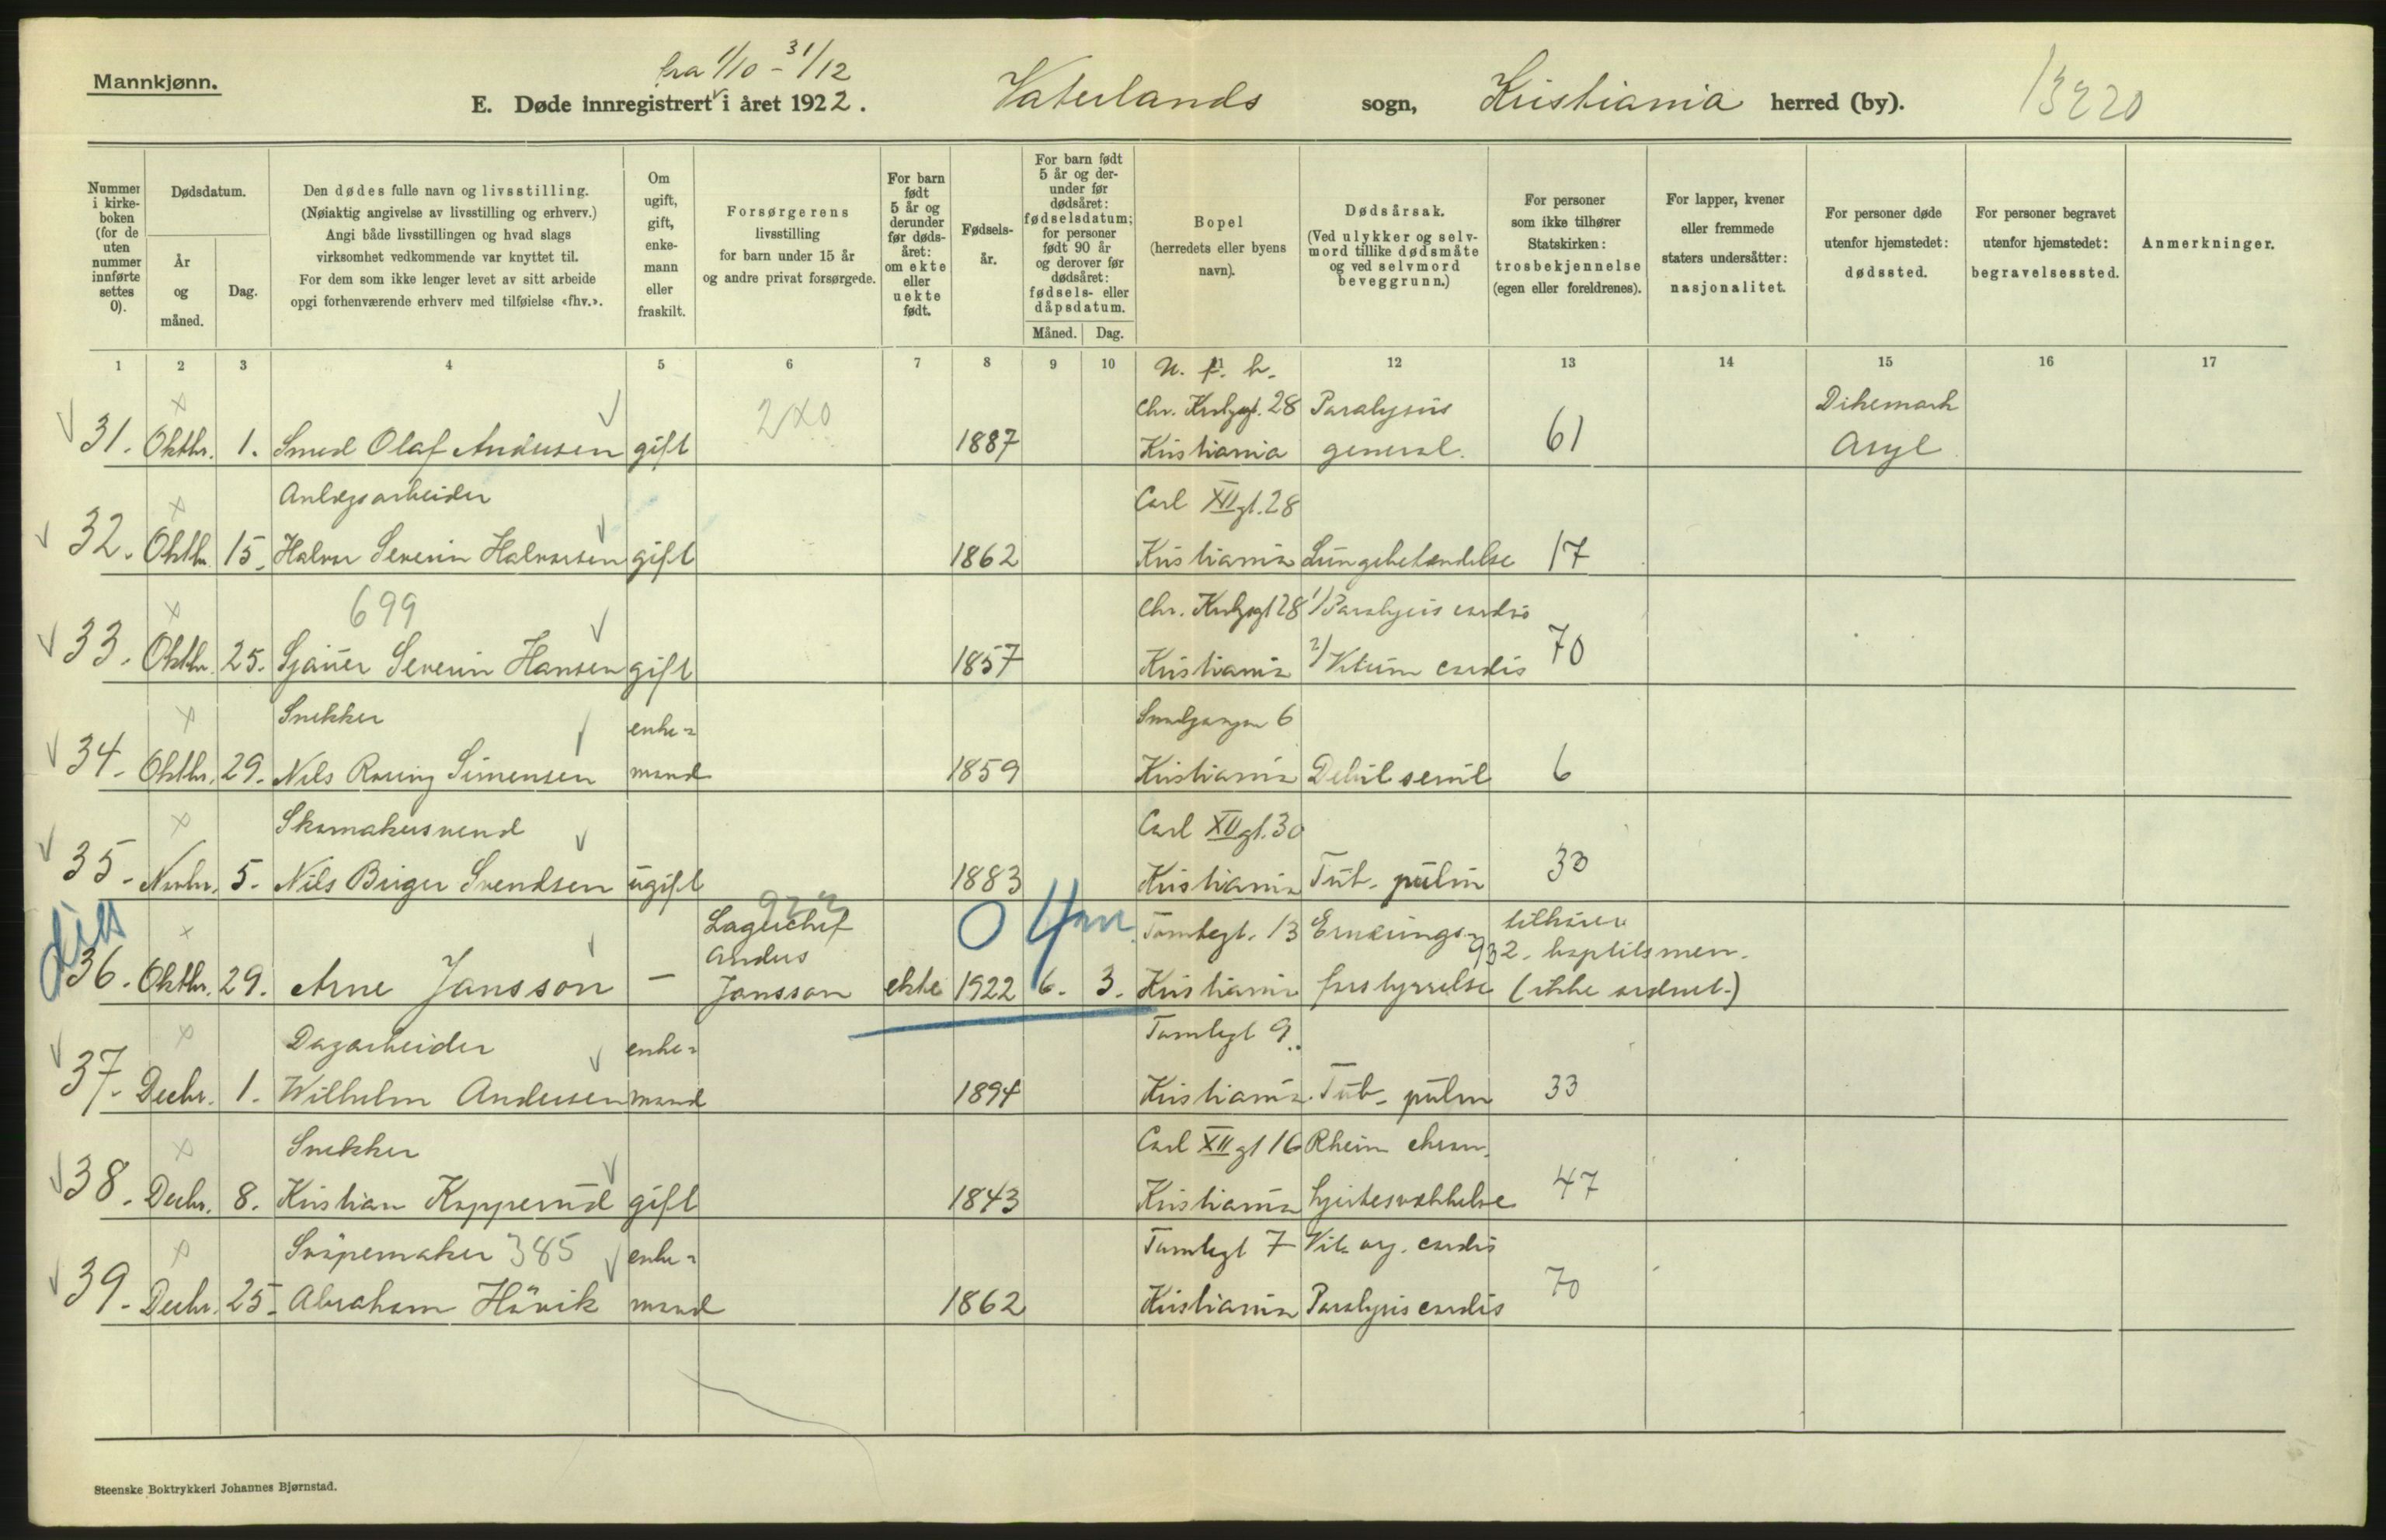 Mannkjønn.
fra 1/10 - 31/12
E. Døde innregistrert i året 1922.
Vaterlands sogn, Kristiania herred (by).
13220
Nummer i kirkeboken (for de uten nummer innførte settes 0).
Dødsdatum.
År og måned.
Dag.
Den dødes fulle navn og livsstilling.
(Nøiaktig angivelse av livsstilling og erhverv.)
Angi både livsstillingen og hvad slags
virksomhet vedkommende var knyttet til.
For dem som ikke lenger levet av sitt arbeide
opgi forhenværende erhverv med tilføielse «fhv.».
Om ugift, gift, enkemann eller fraskilt.
Forsørgerens
livsstilling
for barn under 15 år
og andre privat forsørgede.
For barn født 5 år og derunder før dødsåret: om ekte eller uekte født.
Fødselsår.
For barn født 5 år og derunder før dødsåret: fødselsdatum; for personer født 90 år og derover før dødsåret: fødsels- eller dåpsdatum.
Måned. Dag.
Bopel
(herredets eller byens
navn).
Dødsårsak.
(Ved ulykker og selvmord tillike dødsmåte og ved selvmord beveggrunn.)
For personer
som ikke tilhører
Statskirken:
trosbekjennelse
(egen eller foreldrenes).
For lapper, kvener
eller fremmede
staters undersåtter:
nasjonalitet.
For personer døde
utenfor hjemstedet:
dødssted.
For personer begravet
utenfor hjemstedet:
begravelsessted.
Anmerkninger.
1 2 3 4 5 6 7 8 9 10 11 12 13 14 15 16 17
Chr. Krohgsgt. 28 Paralysis Dikemark
31. Oktbr. 1. Smed Olaf Andersen gift 1887 Kristiania general. 61 Asyl
Anlægsarbeider Carl XII gt. 28
32. Oktbr. 15. Halvor Severin Halvorsen gift 1862 Kristiania Lungebetændelse 17
699 Chr. Krohgsgt 28 1) Paralysis cordis
33. Oktbr. 25. Sjauer Severin Hansen gift 1857 Kristiania 2) Vitium cordis 70
Snekker enke= Smalgangen 6
34. Oktbr. 29. Nils Simensen mand 1859 Kristiania Debil senil 6
Skomakersvend Carl XII gt. 30
35. Novbr. 5. Nils Birger Svendsen ugift 1883 Kristiania Tub. pulm 33
Lagerchef 0 4 Tomtegt. 13 Ernærings- tilhører
Anders 932 baptistmen.
36. Oktbr. 29. Arne Jansson — Jansson ekte 1922 6. 3. Kristiania forstyrrelse (ikke ordnet.)
Dagarbeider enke= Tomtegt 9
37. Decbr. 1. Wilhelm Andersen mand 1894 Kristiania Tub. pulm 33
Snekker Carl XII gt 16 Rheum chron.
38. Decbr. 8. Kristian Kopperud gift 1843 Kristiania hjertesvækkelse 47
Svøpemaker 385 enke= Tomtegt 7 Vit. org. cordis
39. Decbr. 25. Abraham Hövik mand 1862 Kristiania Paralysis cordis 70
Steenske Boktrykkeri Johannes Bjørnstad.